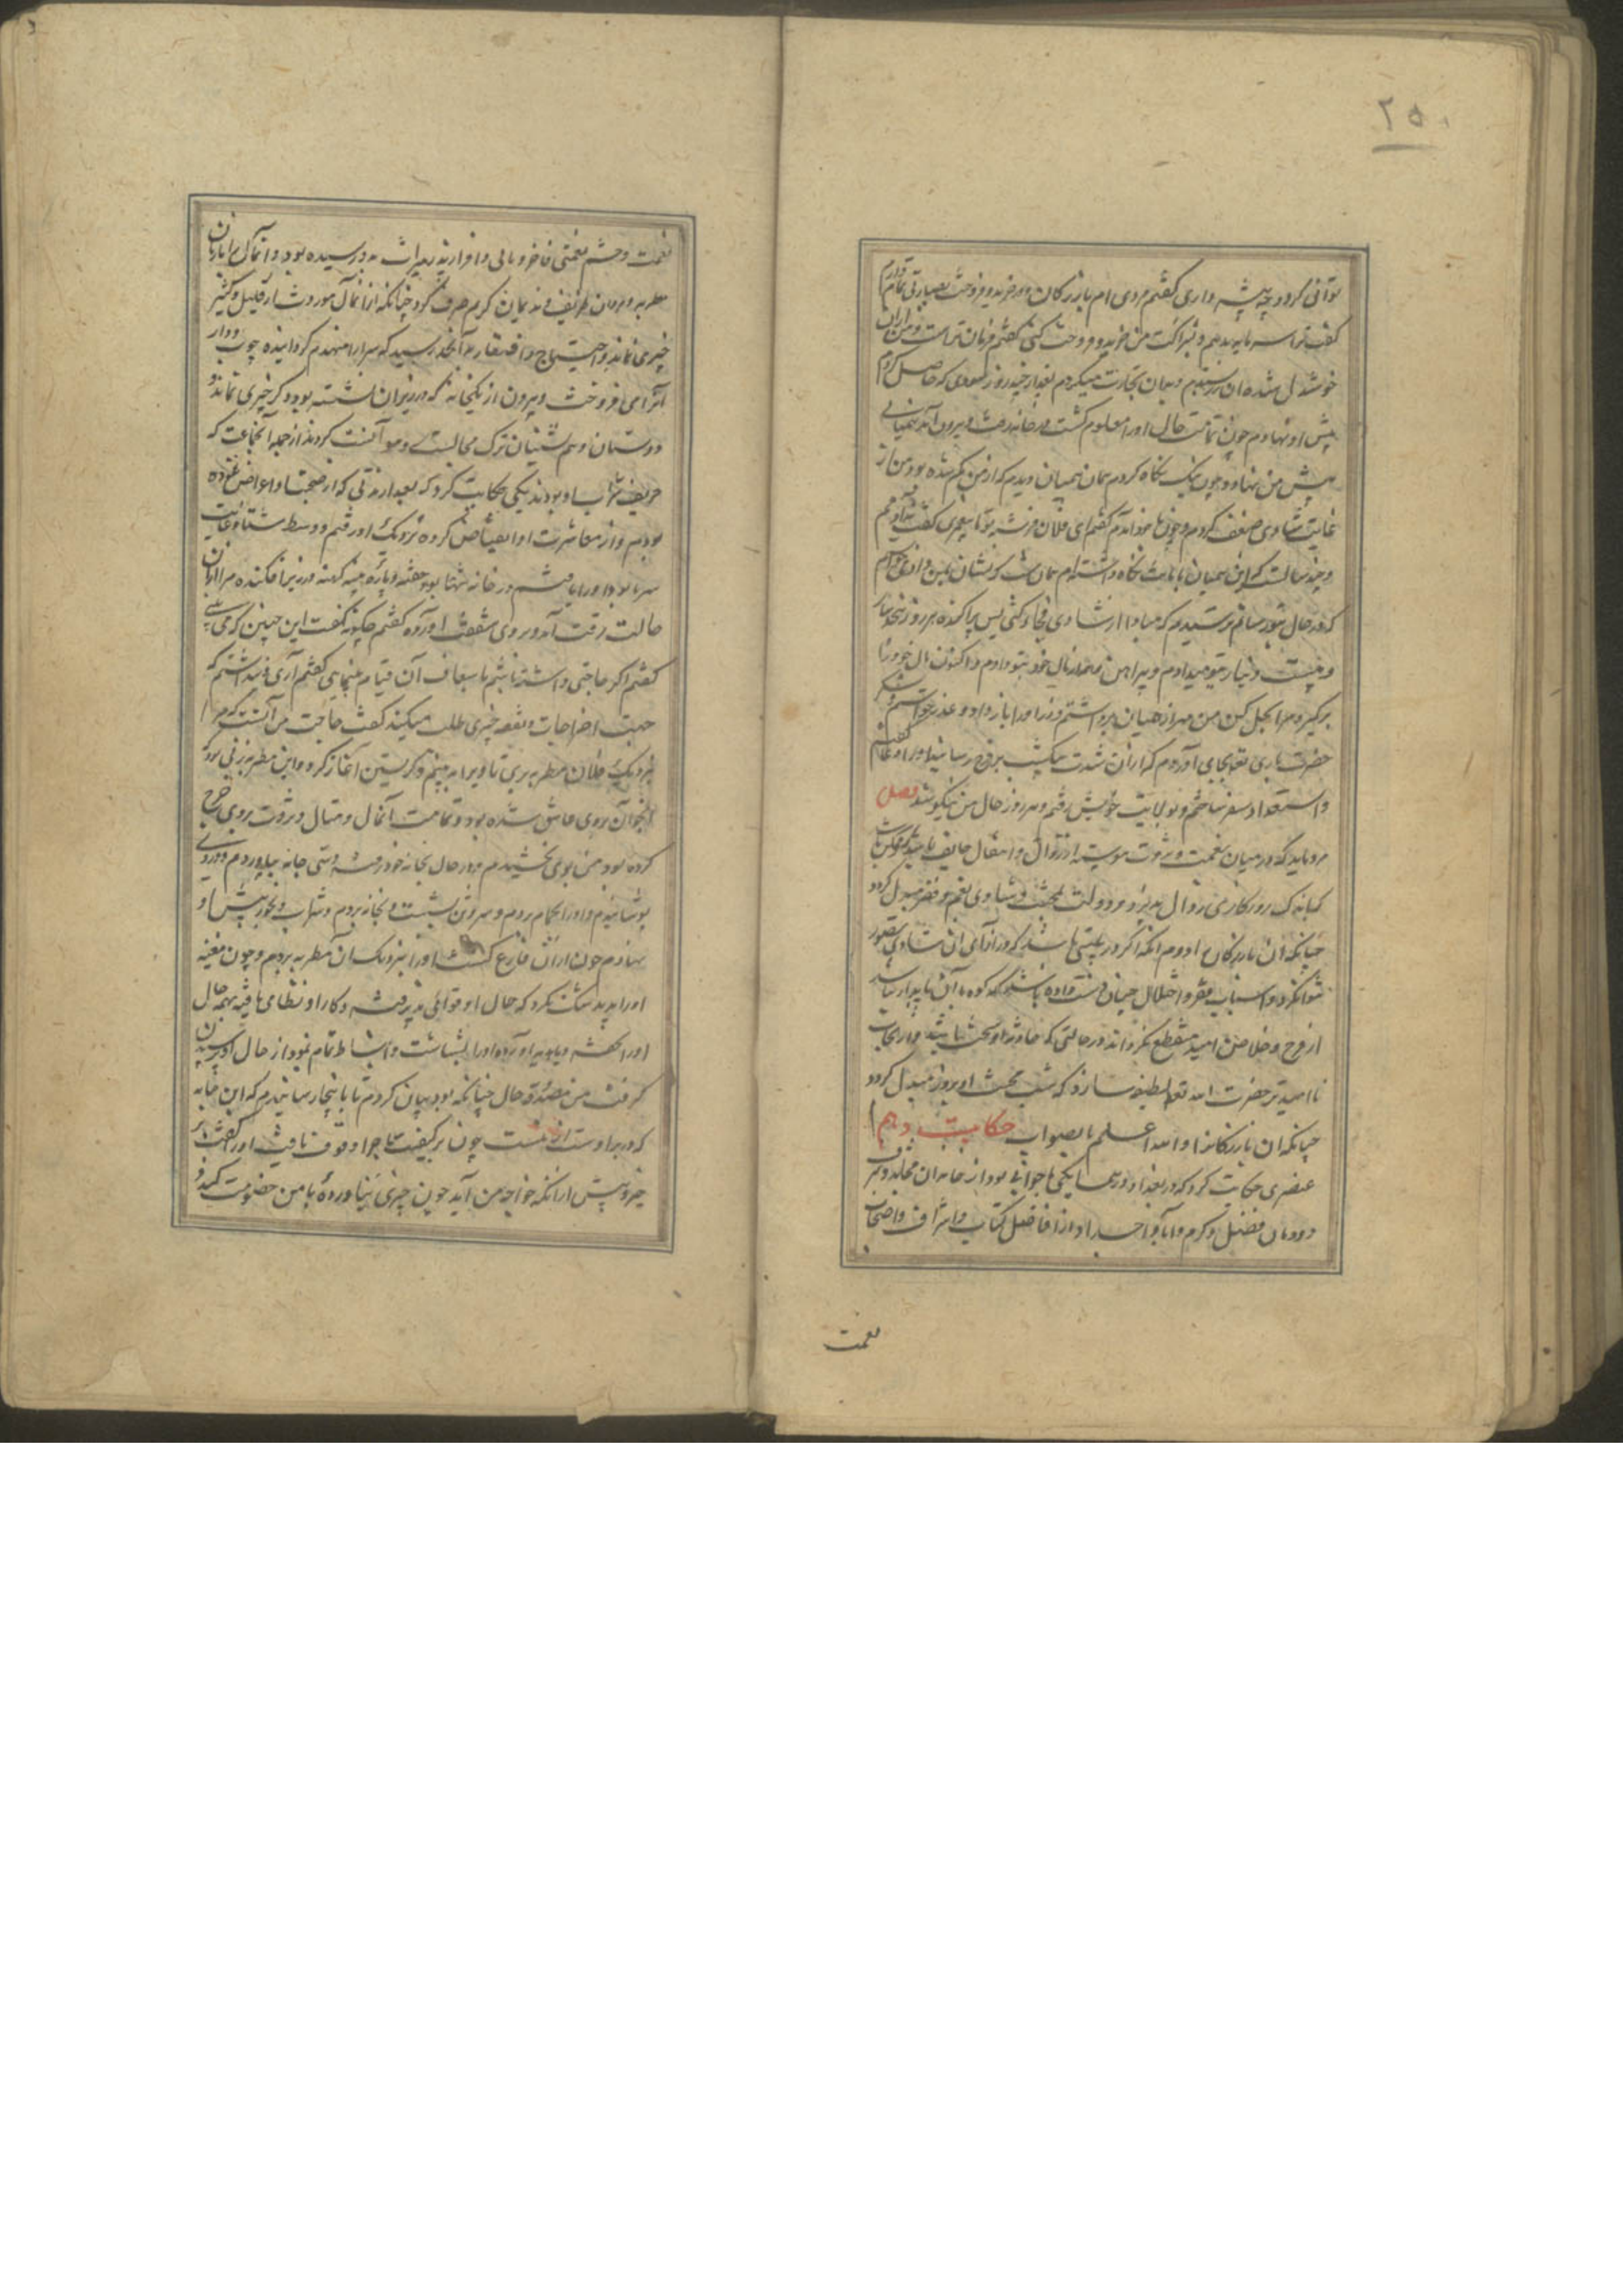 ۲۵۰
توانی کرد و چه پیشه داری گفتم مردی ام بازرگان و در خرید و فروخت بصارتی تمام دارم
گفت ترا سرمایه بدهم و بشراکت من خرید و فروخت کنی گفتم فرمان تراست و من از آن
خوشدل شدم و بدان تجارت میکردم بعد از چند روز سودی که حاصل کردم
پیش او نهادم چون امانت حال او را معلوم گشت در خانه رفت و بیرون آمد همیانی
پیش من نهاد و چون نیک نگاه کردم همان همیان دیدم که از من گم شده بود من از
غایت شادی ضعف کردم و چون با خود آمدم گفتم ای فلان فرشته یا پیغمبری گفت نه آدمیم
و چند سالست که این همیان بامانت نگاه داشته ام
که در حال بتو رسانم ترسیدم که مبادا از شادی فجاءه کنی پس پراکنده هر روز
و بیست دینار بتو میدادم و پیراهن هم از مال خود بتو دادم و اکنون مال خود را
برگیر و مرا بحل کن من همیان برداشتم و زر او را باز دادم و عذر خواستم و شکر
حضرت باری تعالی بجای آوردم که از آن شدت نکبت بفرج رسانید
و استعداد سفر ساختم و بولایت خویش رفتم و هر روز حال من نیکو شد فصل
مرد باید که در میان نعمت و ثروت پیوسته از زوال و انتقال خایف باشد
که باندک روزگاری زوال پذیرد و دولت بمحنت و شادی بغم و فقر مبدل گردد
چنانکه آن بازرگان را و دوم آنکه اگر در بلیتی باشد که در ازای آن شادی تصور
نتوان کرد و اسباب فقر و اختلال چنان دست داده باشد که کوه با آن پایدار نباشد
از فرج و خلاص امید منقطع نگرداند در حالتی که حادثه او سخت باشد و از نجات
نا امیدتر حضرت الله تعالی لطیفه سازد که شب محنت او بروز مبدل گردد
چنانکه آن بازرگانرا و الله اعلم بالصواب حکایت دهم
عنصری حکایت کرد که در بغداد در همسایگی ما جوانی بود از خاندان مجد و شرف
دودمان فضل و کرم و آبا و اجداد او از افاضل کتاب و اشراف و اصحاب
نعمت
نعمت و حشم نعمتی فاخر و مالی وافر از پدر بمیراث بدو رسیده بود و آن مال را با زنان
مطربه و مردمان ظریف و ندیمان کریم صرف کرد چنانکه از آنمال موروث از قلیل و کثیر
چیزی نماند و احتیاج و افتقار بدآنجا رسید که سرا را منهدم گردانیده چوب و دار
آنرا می فروخت و بیرون از یکخانه که در زیر آن نشسته بود دیگر چیزی نماند و
دوستان و همنشینان ترک مجالست و موآنست کردند از جمله آنجماعت که
حریف شراب او بودند یکی حکایت کرد که بعد از مدتی که از صحبت او اعراض نموده
بودیم و از معاشرت او انقباض کرده نزدیک او رفتم و وسط شتا و غایت
سرما بود او را یافتم در خانه تنها خفته و پارۀ پنبه کهنه در زیر افکنده مرا از آن
حالت رقت آمد و بروی شفقت آورده گفتم چگونۀ گفت این چنین که می بینی
گفتم اگر حاجتی داشته باشی تا باسعاف آن قیام نمایم گفتم آری پنداشتم که
جهت اخراجات و نفقه چیزی طلب میکند گفت حاجت من آنست که مرا
نزدیک فلان مطربه بری تا ویرا به بینم و گریستن آغاز کرد و این مطربه زنی بود
اینجوان بروی عاشق شده بود و تمامت آنمال و منال و ثروت بروی خرج
کرده بود من بروی بخشیدم و در حال بخانه خود رفته دستی جامه بیاوردم و در وی
پوشانیدم و او را بحمام بردم و سر و تن بشست و بخانه بردم و شراب و بخور پیش او
نهادم چون از آن فارغ گشت او را بنزدیک آن مطربه بردم و چون مغنیه
او را بدید شک نکرد که حال او قوامی پذیرفته و کار او نظامی یافته بهمه حال
او را بشاشت و انبساط تمام نمود از حال او پرسیدن
گرفت من قصۀ حال چنانکه بود بیان کردم تا باینجا رسانیدم که این جامه
که در بر اوست از منست چون بر کیفیت ماجرا وقوف یافت او را گفت
خیز و پیش از آنکه خواجۀ من آید چون چیزی نیاوردۀ با من خصومت کند و